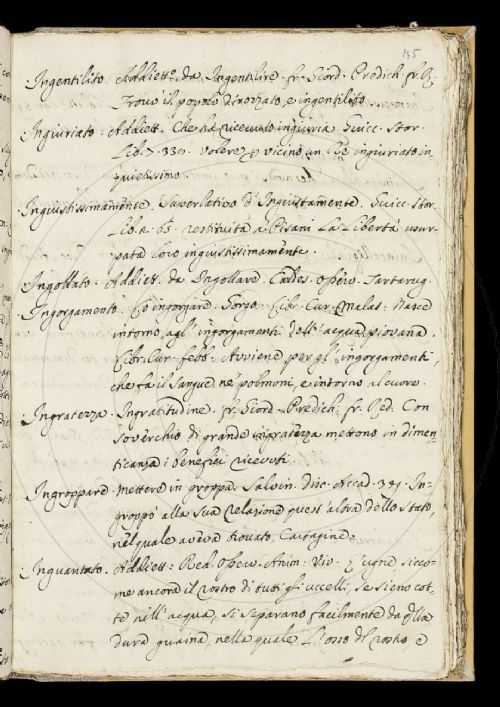 195
Ingentilito. Addiett.o da Ingentilire. fr. Giord. Predich. fr. R.
Trovò il popolo dirozzato, e ingentilito.
Ingiuriato. Addiett. Che ha ricevuto ingiuria. Guicc. Stor.
Lib. 7. 339. volere p vicino un Re ingiuriato in
quietissimo.
Ingiustissimamente. Superlativo d'Ingiustamente. Guicc. Stor.
Lib. restituita a Pisani la libertà usur-
pata loro ingiustissimamente.
Ingollato. Addiett. da Ingollare. operv. Tartarug.
Ingorgamento. Lo ingorgare. Gorgo. Libr. Cur. Malat. Nasce
intorno agl' ingorgamenti dell' acqua piovana.
Libr. Cur. febb. Avviene per gl' ingorgamenti,
che fa il sangue ne' polmoni, e intorno al cuore.
Ingratezza. Ingratitudine. fr. Giord. Predich. fr. Red. Con
soverchio di grande ingratezza mettono in dimen-
ticanza i benefici ricevuti.
Ingroppare. Mettere in groppa. Salvin. Disc. Accad. 391. In-
groppò alla sua relazione quest'altra dello Stato,
nel quale aveva trovato Cartagine.
Inguantato. Addiett. Red. Operv. Anim. Viv. L'ugne sicco-
me ancora il rostro di tutti gli uccelli, se sieno cot-
te nell' acqua, si separano facilmente da qlla
dura guaina, nella quale l'osso del rostro e